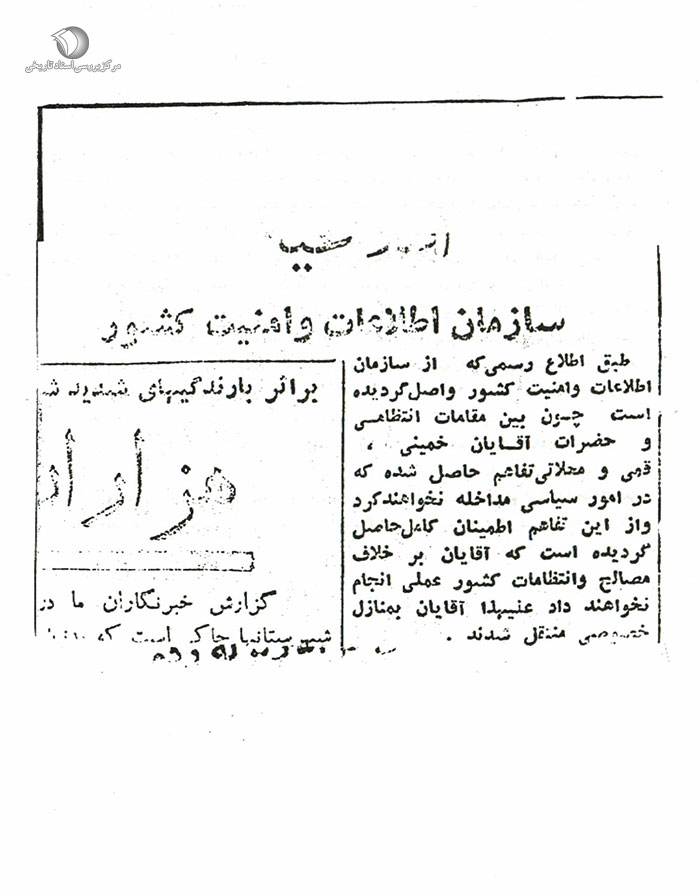 مرکز بررسی اسناد تاریخی
سازمان اطلاعات وامنیت کشور
طبق اطلاع رسمی‌که از سازمان
اطلاعات وامنیت کشور واصل‌گردیده
است چون بین مقامات انتظامی
و حضرات آقایان خمینی ،
قمی و محلاتی‌تفاهم حاصل شده که
در امور سیاسی مداخله نخواهندکرد
واز این تفاهم اطمینان کامل‌حاصل
گردیده است که آقایان بر خلاف
مصالح وانتظامات کشور عملی انجام
نخواهند داد علیهذا آقایان بمنازل
خصوصی منتقل شدند .
براثر بارندگیهای شدید
هزاران
گزارش خبرنگاران ما در
شهرستانها حاکی است که